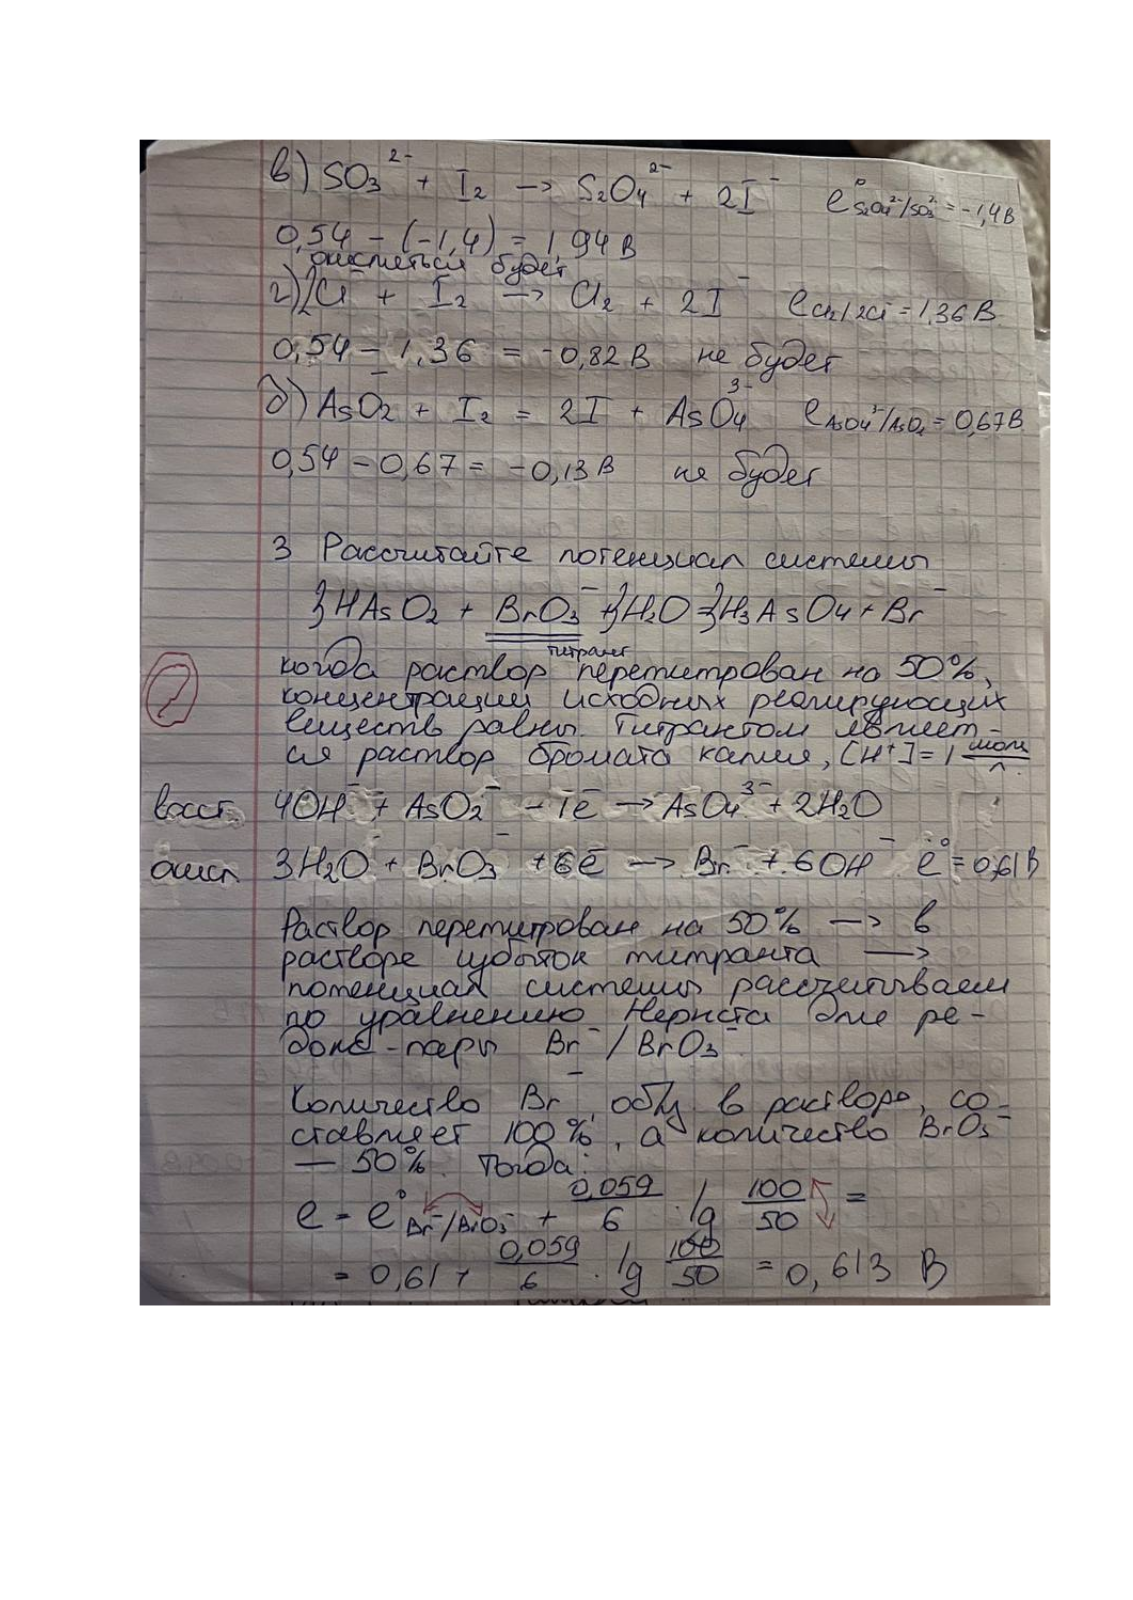 в) SO₃²⁻ + I₂ → S₂O₄²⁻ + 2I⁻ e°S₂O₄²⁻/SO₃²⁻ = -1,4В
0,54 - (-1,4) = 1,94 В
окисляться будет
г) 2Cl⁻ + I₂ → Cl₂ + 2I⁻ eCl₂/2Cl⁻ = 1,36 В
0,54 - 1,36 = -0,82 В не будет
д) AsO₂⁻ + I₂ = 2I + AsO₄³⁻ eAsO₄³⁻/AsO₂⁻ = 0,67В
0,54 - 0,67 = -0,13 В не будет
3 Рассчитайте потенциал системы
3HAsO₂ + BrO₃⁻ + 3H₂O = 3H₃AsO₄ + Br⁻
титрант
когда раствор перетитрован на 50%,
концентрации исходных реагирующих
веществ равны. Титрантом являет-
ся раствор бромата калия, [H⁺] = 1 моль/л.
восст. 4OH⁻ + AsO₂⁻ - 1ē → AsO₄³⁻ + 2H₂O
окисл. 3H₂O + BrO₃⁻ + 6ē → Br⁻ + 6OH⁻ e° = 0,61 В
Раствор перетитрован на 50% → в
растворе избыток титранта →
потенциал системы рассчитываем
по уравнению Нернста для ре-
докс-пары Br⁻/BrO₃⁻
Количество Br⁻, обр. в растворе, со-
ставляет 100%, а количество BrO₃⁻
— 50%. Тогда:
e = e°Br⁻/BrO₃⁻ + 0,059/6 · lg 100/50 =
= 0,61 + 0,059/6 · lg 100/50 = 0,613 В